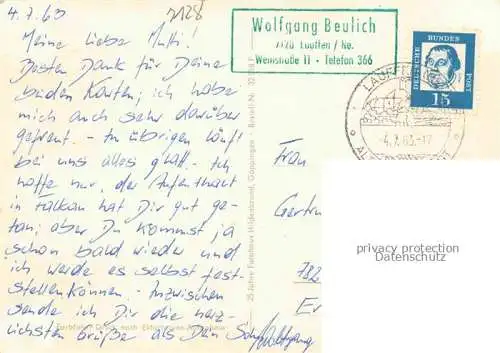 4.7.63
7128
Meine liebe Mutti!
Besten Dank für Deine
beiden Karten; ich habe
mich auch sehr darüber
gefreut. - Im übrigen läuft
bei uns alles glatt. - Ich
hoffe nur, der Aufenthalt
in Falkau hat Dir gut ge-
tan; aber Du kommst ja
schon bald wieder und
ich werde es selbst fest-
stellen können. - Inzwischen
sende ich Dir die herz-
lichsten Grüße als Dein Sohn Wolfgang
Wolfgang Beulich
7128 Lauffen / Ne.
Weinstraße 11 - Telefon 366
DEUTSCHE BUNDESPOST
15
LAUFFEN
-4.7.63.-17
Frau
Gertru
782
privacy protection
Datenschutz
25 Jahre
Göppingen